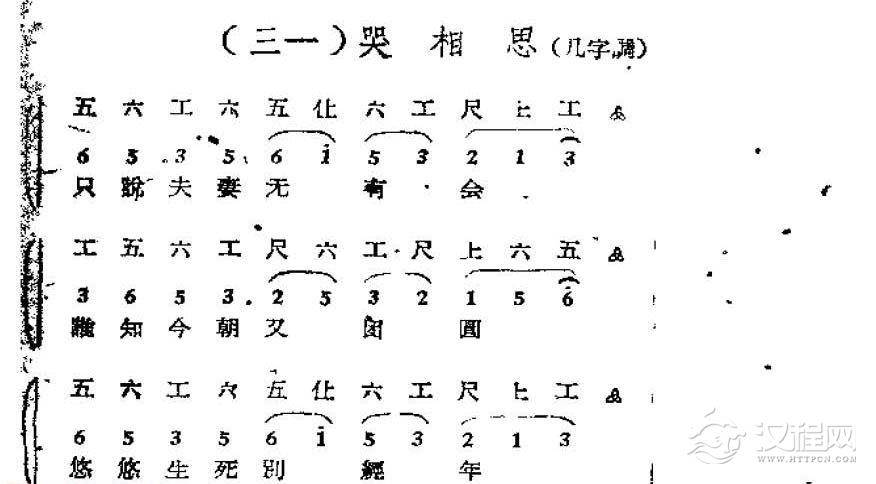 (三一)哭相思(凡字調)
五六工六五仩六工尺上工
6 5 3 5 6 i 5 3 2 1 3
只說夫妻无有会
工五六工尺六工尺上六五
3 6 5 3 2 5 3 2 1 5 6
誰知今朝又团圓
五六工六五仩六工尺上工
6 5 3 5 6 i 5 3 2 1 3
悠悠生死別經年
汉程网
WWW.HTTPCN.COM